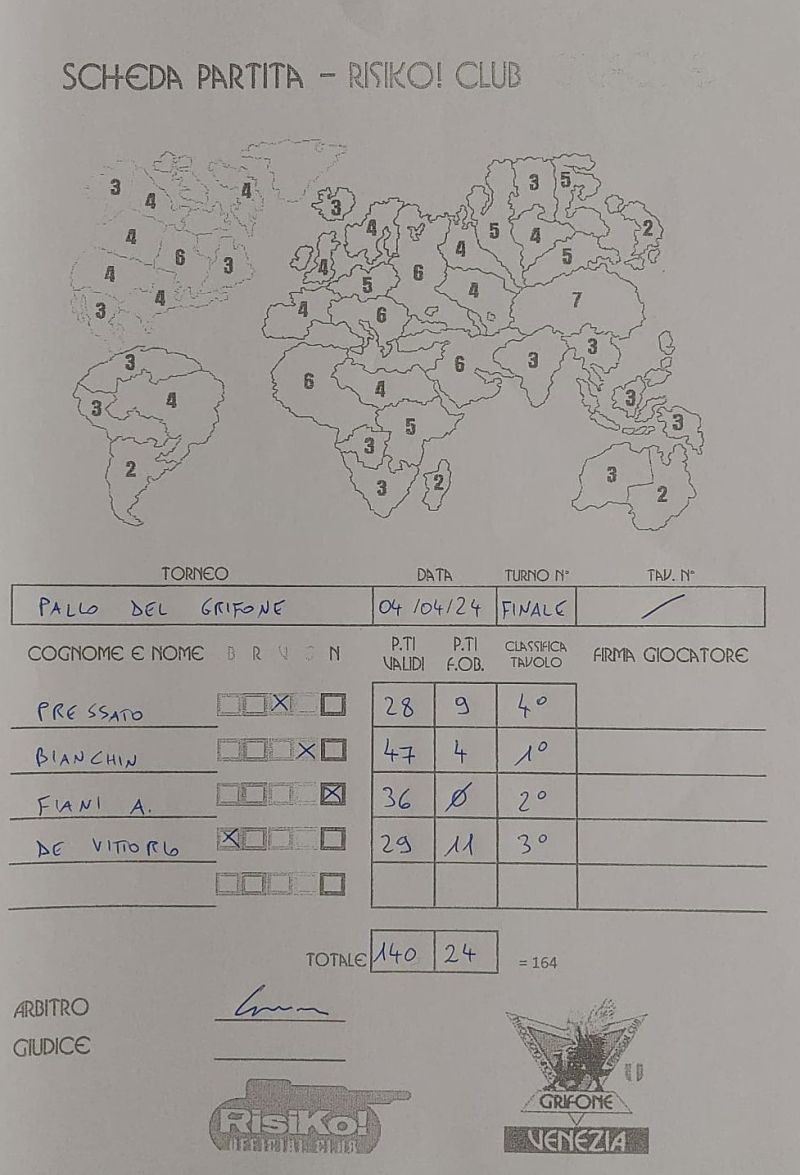 SCHEDA PARTITA – RISIKO! CLUB
3 4 4 3 4 5 3 5 2
4 6 3 4 4 5 6 4 4 5
4 4 3 4 6 4 7
3 4 3 6 4 6 3 3
3 5 3 3
2 3 3 2 3 2
TORNEO DATA TURNO N° TAV. N°
PALLO DEL GRIFONE 04/04/24 FINALE /
COGNOME E NOME B R V G N P.TI VALIDI P.TI F.OB. CLASSIFICA TAVOLO FIRMA GIOCATORE
PRESSATO X 28 9 4°
BIANCHIN X 47 4 1°
FIANI A. X 36 Ø 2°
DE VITTORIO X 29 11 3°
TOTALE 140 24 = 164
ARBITRO
GIUDICE
RisiKo!
OFFICIAL CLUB
GRIFONE
VENEZIA